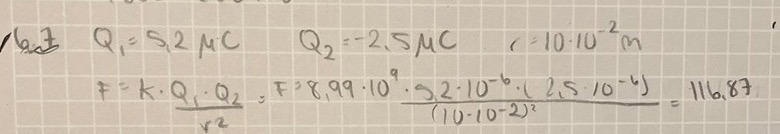 Q₁ = 5,2 μC Q₂ = -2,5 μC r = 10·10⁻² m
F = k · Q₁ · Q₂ / r² = F = 8,99 · 10⁹ · 5,2 · 10⁻⁶ · (2,5 · 10⁻⁶) / (10 · 10-2)² = 116,87